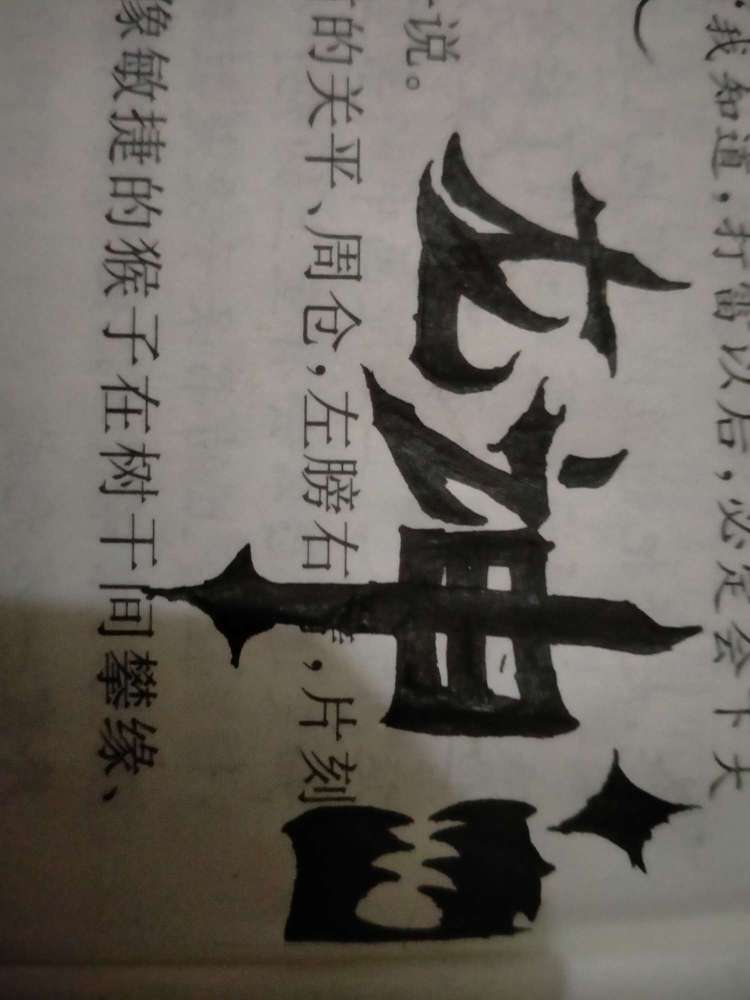 “我知道，打雷以后，必定会下大
龙神
说。
的关平、周仓，左膀右，片刻
像敏捷的猴子在树干间攀缘、